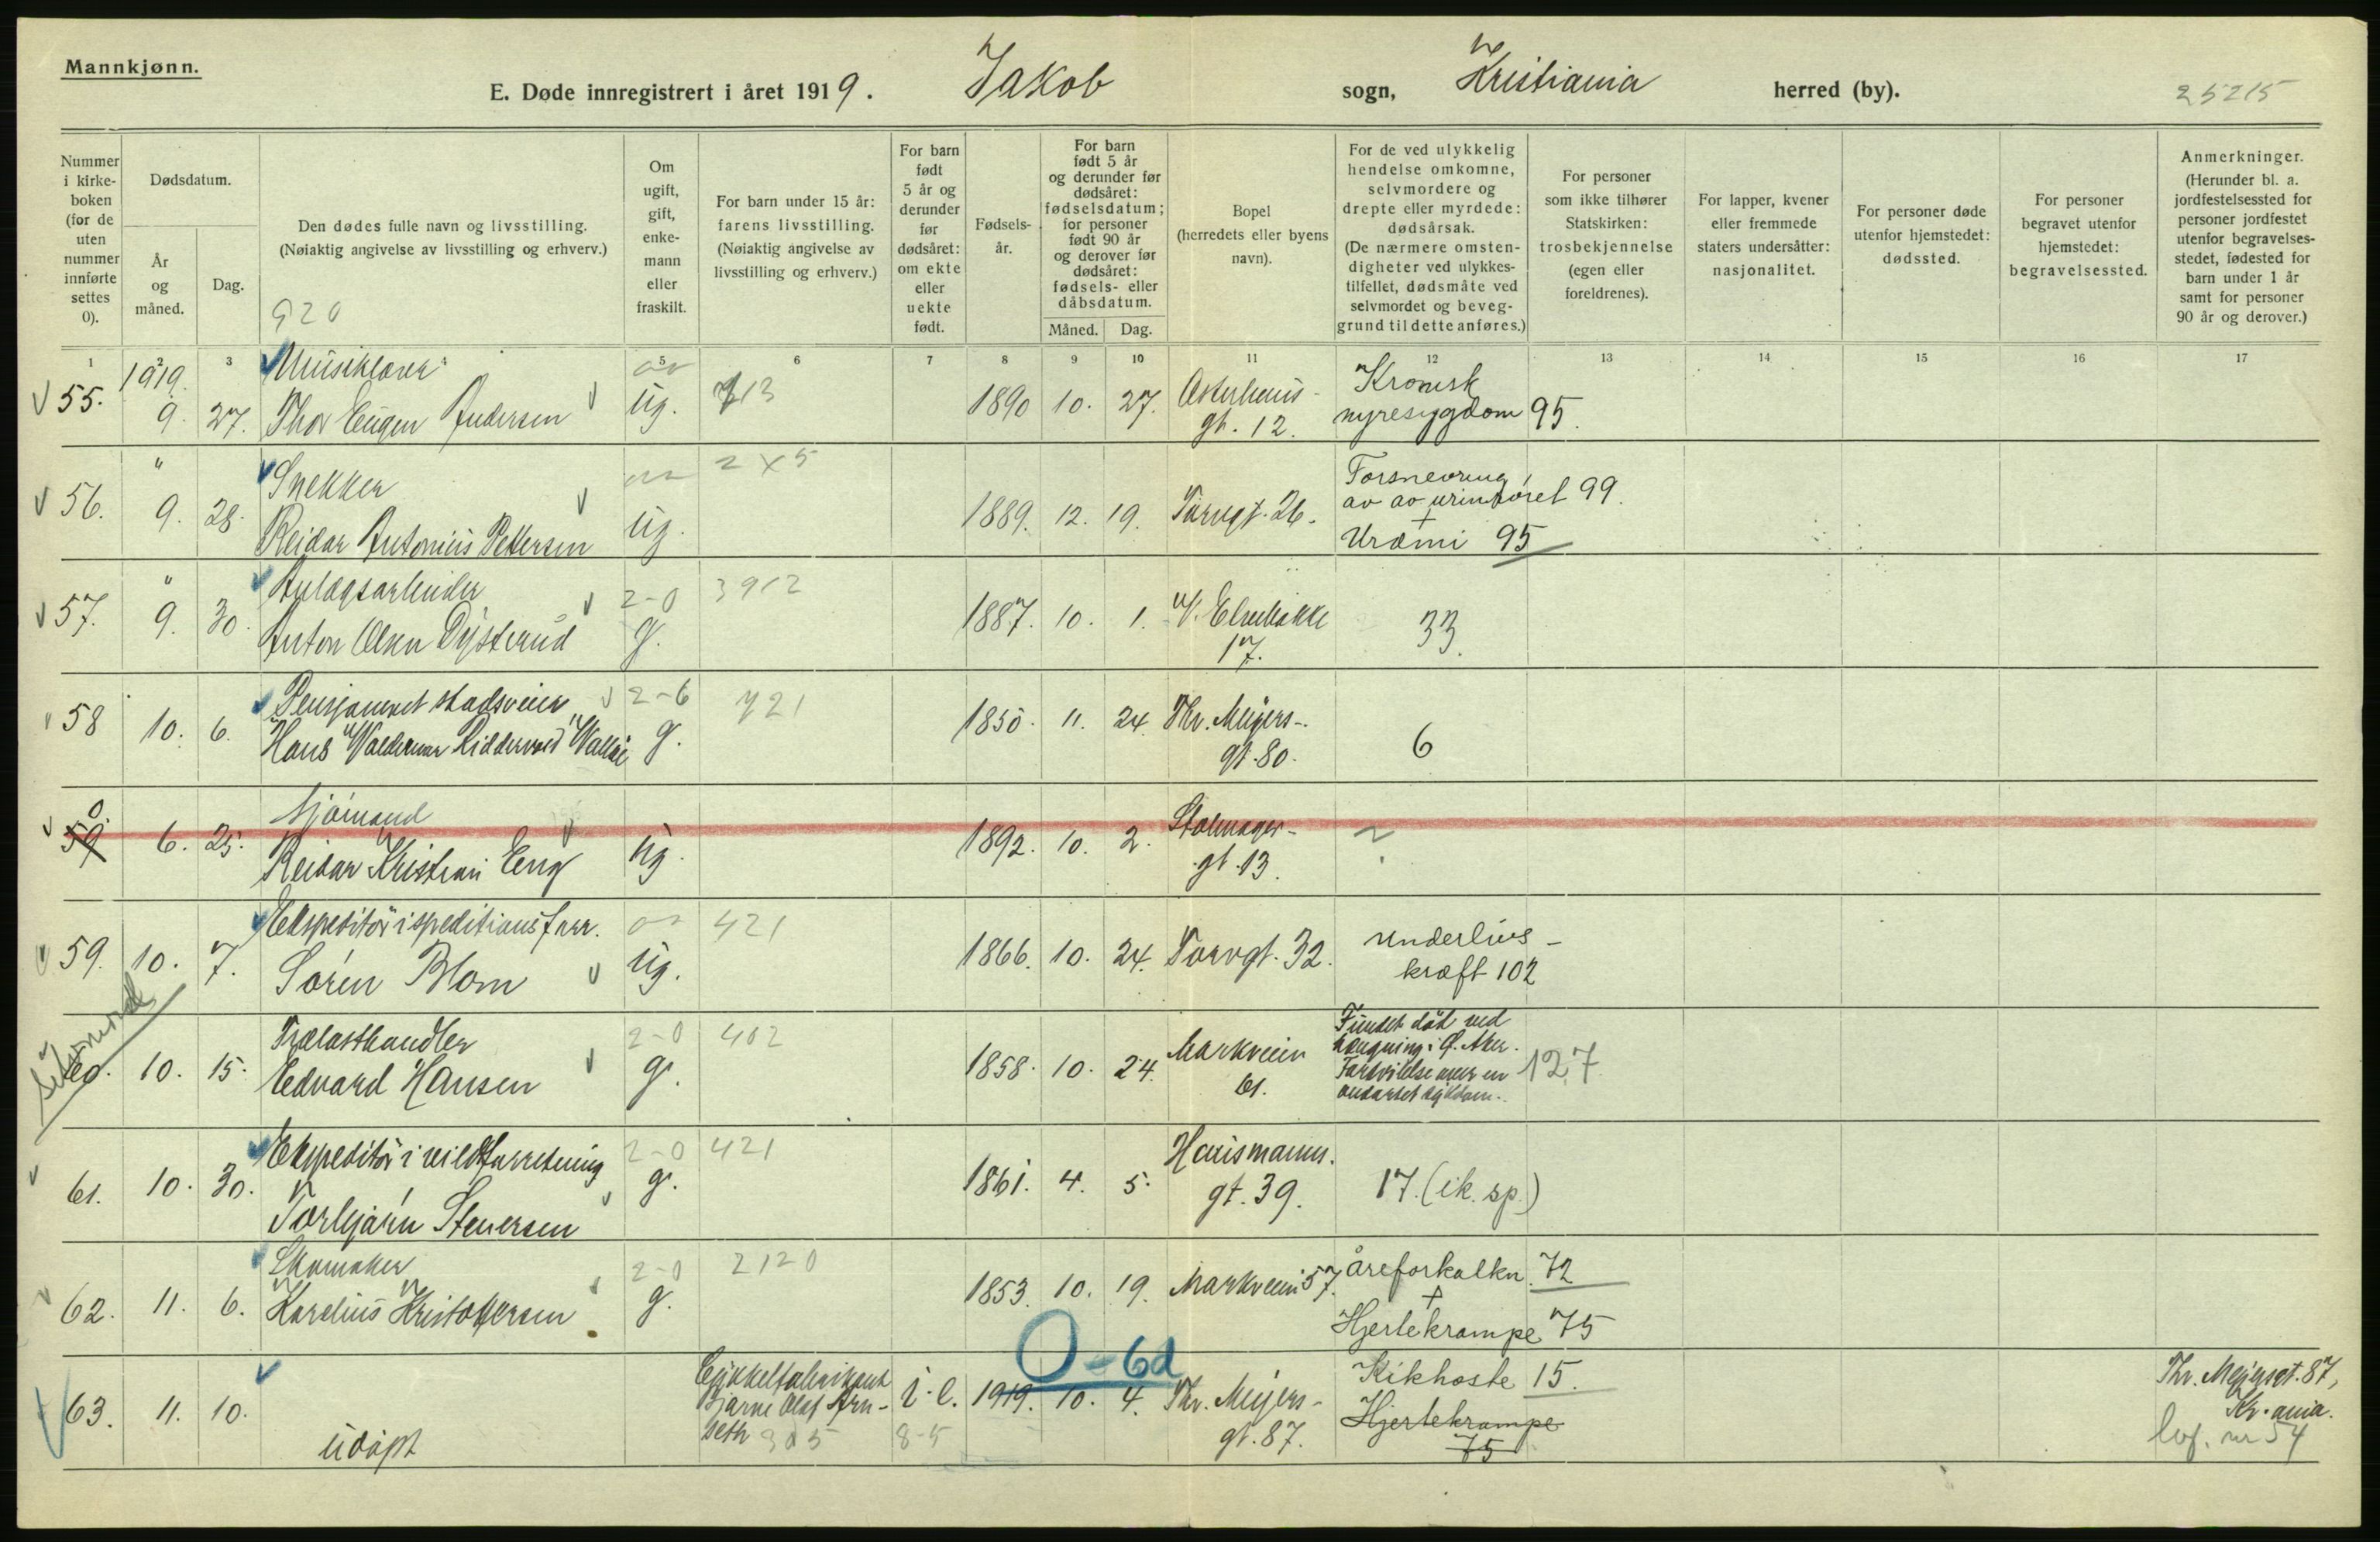 Mannkjønn.
E. Døde innregistrert i året 1919. Jakob sogn, Kristiania herred (by). 25215
Nummer i kirkeboken (for de uten nummer innførte settes 0).
Dødsdatum.
År og måned.
Dag.
Den dødes fulle navn og livsstilling.
(Nøiaktig angivelse av livsstilling og erhverv.)
920
Om ugift, gift, enkemann eller fraskilt.
For barn under 15 år: farens livsstilling.
(Nøiaktig angivelse av livsstilling og erhverv.)
For barn født 5 år og derunder før dødsåret: om ekte eller uekte født.
Fødselsår.
For barn født 5 år og derunder før dødsåret: fødselsdatum; for personer født 90 år og derover før dødsåret: fødsels- eller dåbsdatum.
Måned. Dag.
Bopel (herredets eller byens navn).
For de ved ulykkelig hendelse omkomne, selvmordere og drepte eller myrdede: dødsårsak.
(De nærmere omstendigheter ved ulykkestilfellet, dødsmåte ved selvmordet og beveggrund til dette anføres.)
For personer som ikke tilhører Statskirken: trosbekjennelse (egen eller foreldrenes).
For lapper, kvener eller fremmede staters undersåtter: nasjonalitet.
For personer døde utenfor hjemstedet: dødssted.
For personer begravet utenfor hjemstedet: begravelsessted.
Anmerkninger.
(Herunder bl. a. jordfestelsessted for personer jordfestet utenfor begravelsesstedet, fødested for barn under 1 år samt for personer 90 år og derover.)
1 2 3 4 5 6 7 8 9 10 11 12 13 14 15 16 17
1919. Musiklærer Kronisk
55. 9. 27. Thor Eugen Andersen ug. 713 1890 10. 27. Osterhausgt. 12. nyresygdom 95.
" Snekker 2x5 Forsnevring
56. 9. 28. Reidar Antonius Pettersen ug. 1889. 12. 19. Torvgt. 26. av av urinrøret 99.
+
Uræmi 95
" Anlægsarbeider 2-0 3912
57. 9. 30. Anton Olsen Dysterud g. 1887. 10. 1. V. Elvebakke 17. 33.
Pensjonert stadsveier 2-6 721
58 10. 6. Hans Waldemar Ridderwold Walløe g. 1850. 11. 24. Thv. Meyers-gt. 80. 6
0. Sjømand
59 6. 25. Reidar Kristian Eng ug. 1892. 10. 2. Stolmager-gt. 13. ~
Ekspeditør i speditionsforr. 421 underlivs-
59. 10. 7. Søren Blom ug. 1866. 10. 24. Torvgt. 32. kræft 102
Selvmord
Trælasthandler 2-0 402 Fundet død ved
60. 10. 15. Edvard Hansen g. 1858. 10. 24. Markveien 61. hængning i Ø. Aker. 127
Fortvilelse over en
ondartet sykdom.
Ekspeditør i vildtforretning 2-0 421
61. 10. 30. Torbjørn Stenersen g. 1861. 4. 5. Hausmanns.gt. 39. 17. (ik. sp.)
Skomaker 2-0 2120 Åreforkalkn. 72
62. 11. 6. Karelius Kristoffersen g. 1853. 10. 19. Markveien 57. +
Hjertekrampe 75
0-6d
Cykkelfabrikant Kikhoste 15. Thv. Meyersgt. 87,
63. 11. 10. Bjarne Olaf Arnseth 305 i-e. 1919. 10. 4. Thv. Meyers-gt. 87. Hjertekrampe Kr.ania.
udøpt 8-5 75 lvf. nr 54